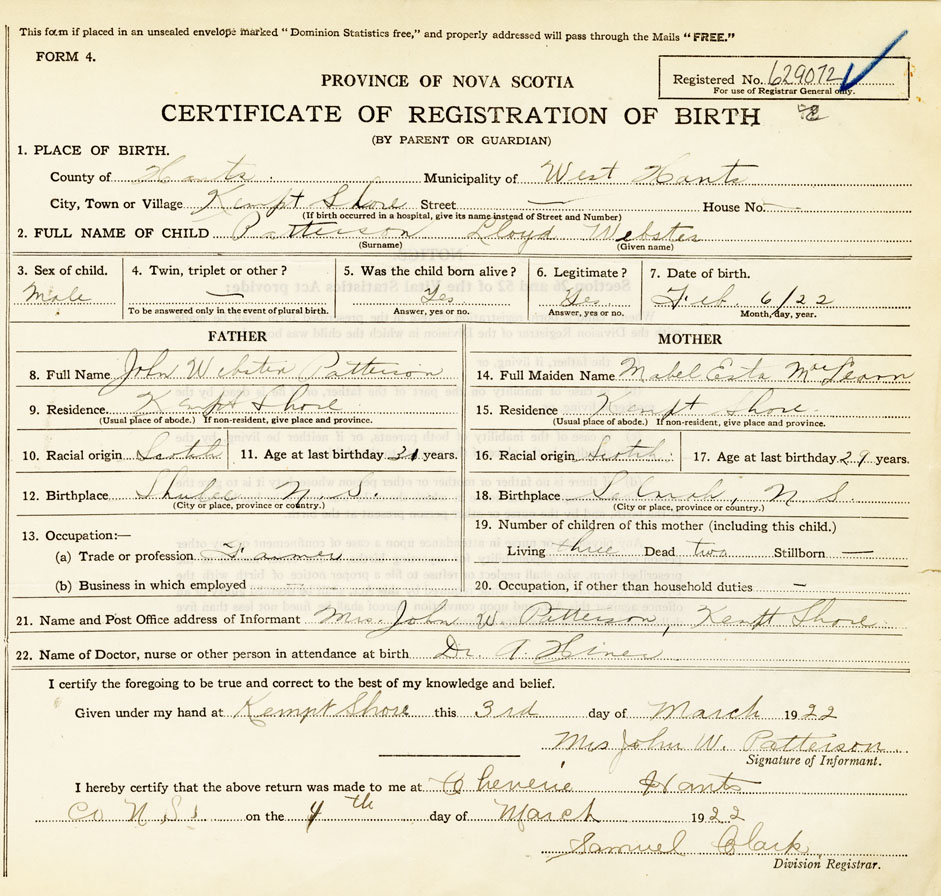 This form if placed in an unsealed envelope marked "Dominion Statistics free," and properly addressed will pass through the Mails "FREE."
FORM 4.
Registered No. 629072
For use of Registrar General only.
PROVINCE OF NOVA SCOTIA
CERTIFICATE OF REGISTRATION OF BIRTH
(BY PARENT OR GUARDIAN)
1. PLACE OF BIRTH.
County of Hants. Municipality of West Hants
City, Town or Village Kempt Shore Street — House No. —
(If birth occurred in a hospital, give its name instead of Street and Number)
2. FULL NAME OF CHILD Patterson Lloyd Webster
(Surname) (Given name)
3. Sex of child. 4. Twin, triplet or other? 5. Was the child born alive? 6. Legitimate? 7. Date of birth.
Male — Yes. Yes Feb. 6/22
To be answered only in the event of plural birth. Answer, yes or no. Answer, yes or no. Month, day, year.
FATHER MOTHER
8. Full Name John Webster Patterson 14. Full Maiden Name Mabel Esta
9. Residence. Kempt Shore 15. Residence Kempt Shore.
(Usual place of abode.) If non-resident, give place and province. (Usual place of abode.) If non-resident, give place and province.
10. Racial origin Scotch 11. Age at last birthday 31 years. 16. Racial origin Scotch. 17. Age at last birthday 29 years.
12. Birthplace Shulee N. S. 18. Birthplace Selmah, N S.
(City or place, province or country.) (City or place, province or country.)
19. Number of children of this mother (including this child.)
13. Occupation:—
(a) Trade or profession Farmer Living three Dead two Stillborn —
(b) Business in which employed — 20. Occupation, if other than household duties —
21. Name and Post Office address of Informant Mrs. John W. Patterson, Kempt Shore.
22. Name of Doctor, nurse or other person in attendance at birth Dr. A.
I certify the foregoing to be true and correct to the best of my knowledge and belief.
Given under my hand at Kempt Shore this 3rd day of March 1922
Mrs John W. Patterson
Signature of Informant.
I hereby certify that the above return was made to me at Cheverie Hants
Co N.S. on the 4th day of March 1922
Samuel Clark
Division Registrar.